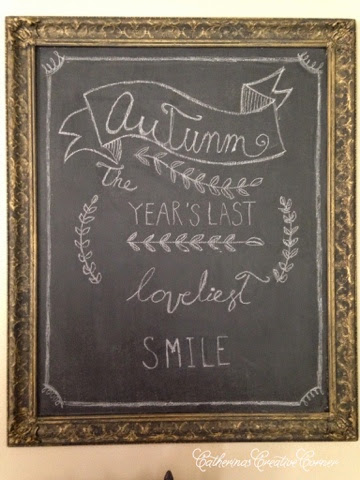 AuTunm
The
YEAR'S LAST
loveliest
SMILE
Catherinas Creative Corner